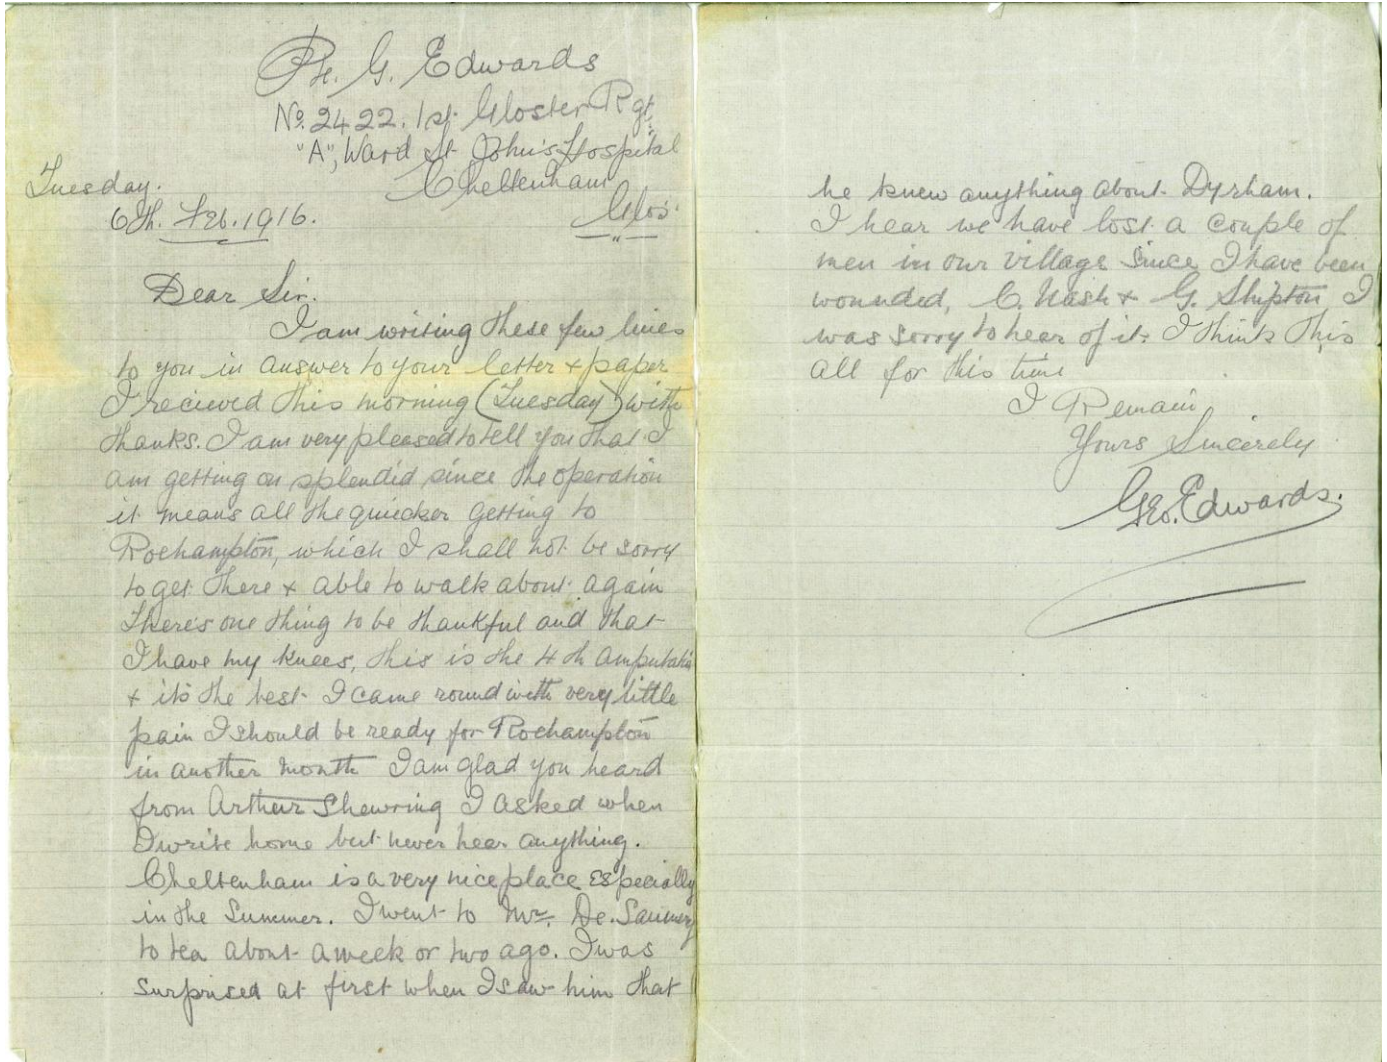 Pte. G. Edwards
No. 2422. 1st. Gloster Rgt.
"A", Ward St. John's Hospital
Cheltenham
Glos.
Tuesday.
6th. Feb. 1916.
Dear Sir.
I am writing these few lines
to you in answer to your letter & paper
I recieved this morning (Tuesday) with
thanks. I am very pleased to tell you that I
am getting on splendid since the operation
it means all the quicker getting to
Roehampton, which I shall not be sorry
to get there & able to walk about again
There's one thing to be thankful and that
I have my knees, this is the 4th amputation
& it's the best I came round with very little
pain I should be ready for Roehampton
in another month I am glad you heard
from Arthur Shewring I asked when
I write home but never hear anything.
Cheltenham is a very nice place especially
in the Summer. I went to Mr. De.
to tea about a week or two ago. I was
surprised at first when I saw him that
he knew anything about Dyrham.
I hear we have lost a couple of
men in our village since I have been
wounded, C. Nash & G. Shipton, I
was sorry to hear of it. I think this
all for this time
I Remain
Yours Sincerely
Geo. Edwards.